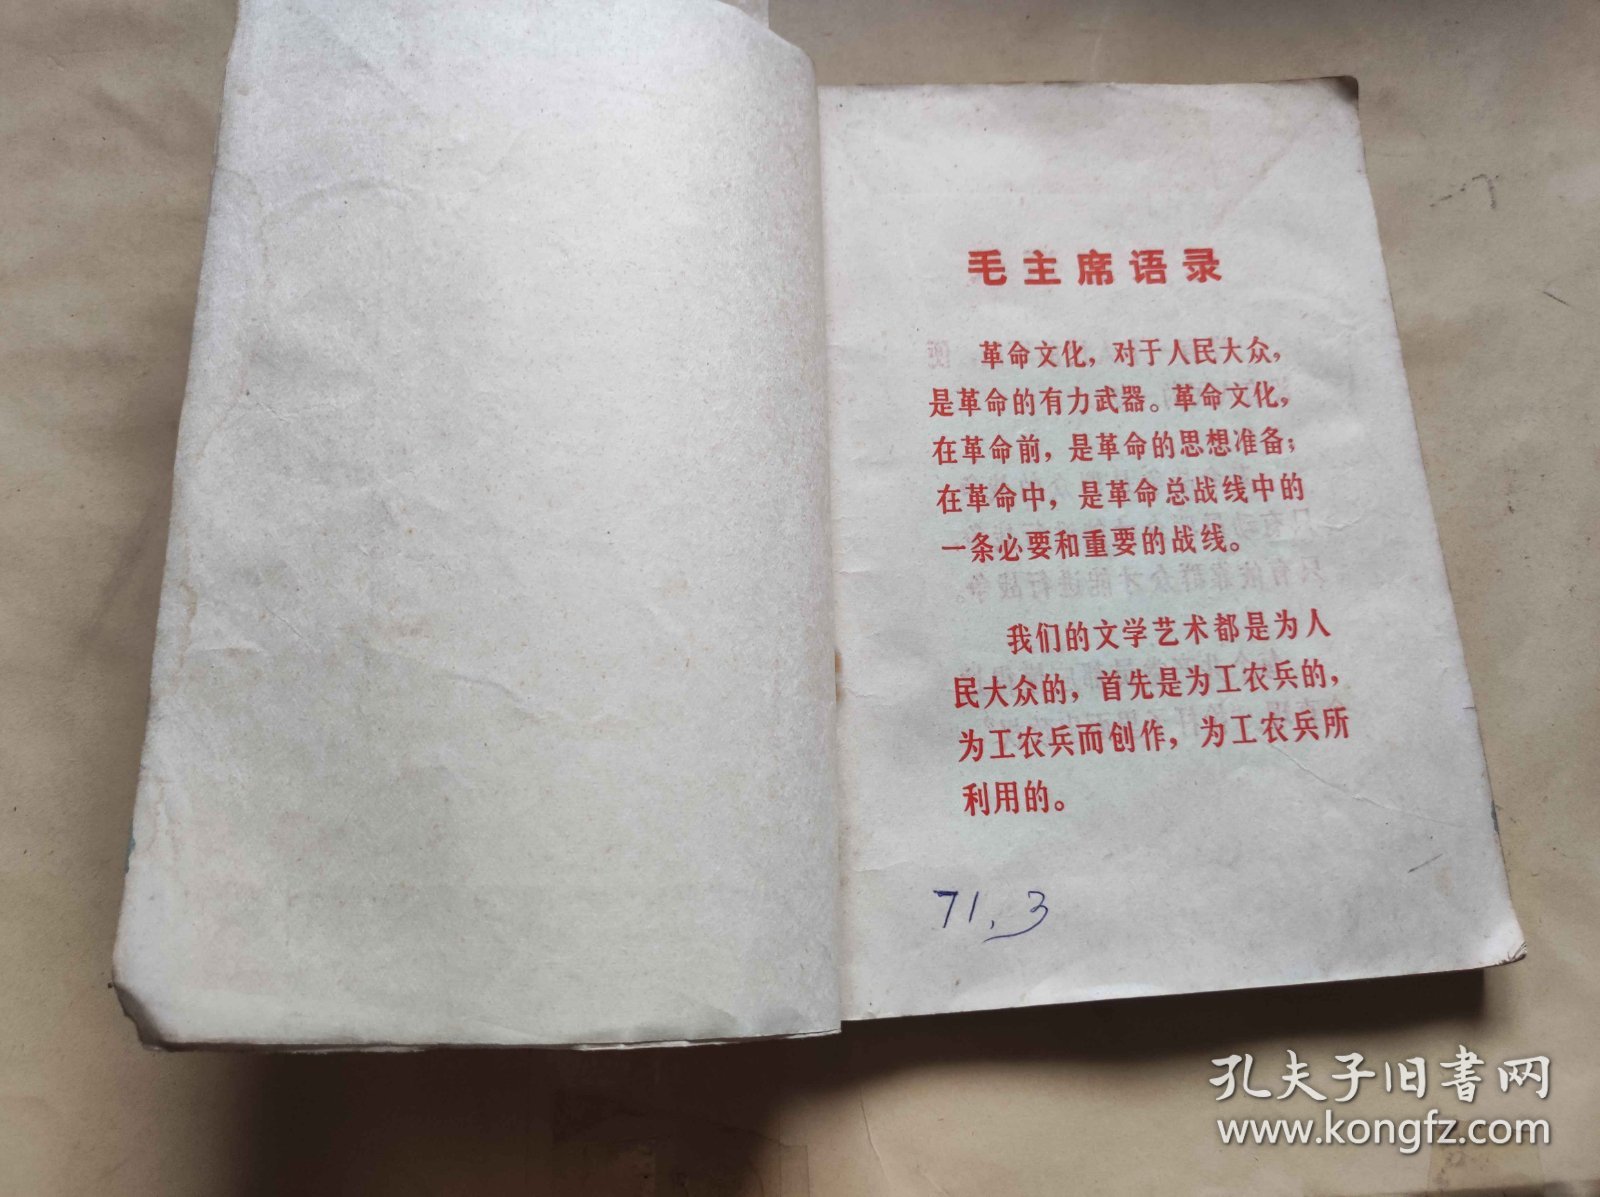 毛主席语录
革命文化，对于人民大众，
是革命的有力武器。革命文化，
在革命前，是革命的思想准备；
在革命中，是革命总战线中的
一条必要和重要的战线。
我们的文学艺术都是为人
民大众的，首先是为工农兵的，
为工农兵而创作，为工农兵所
利用的。
71.3
孔夫子旧书网
www.kongfz.com